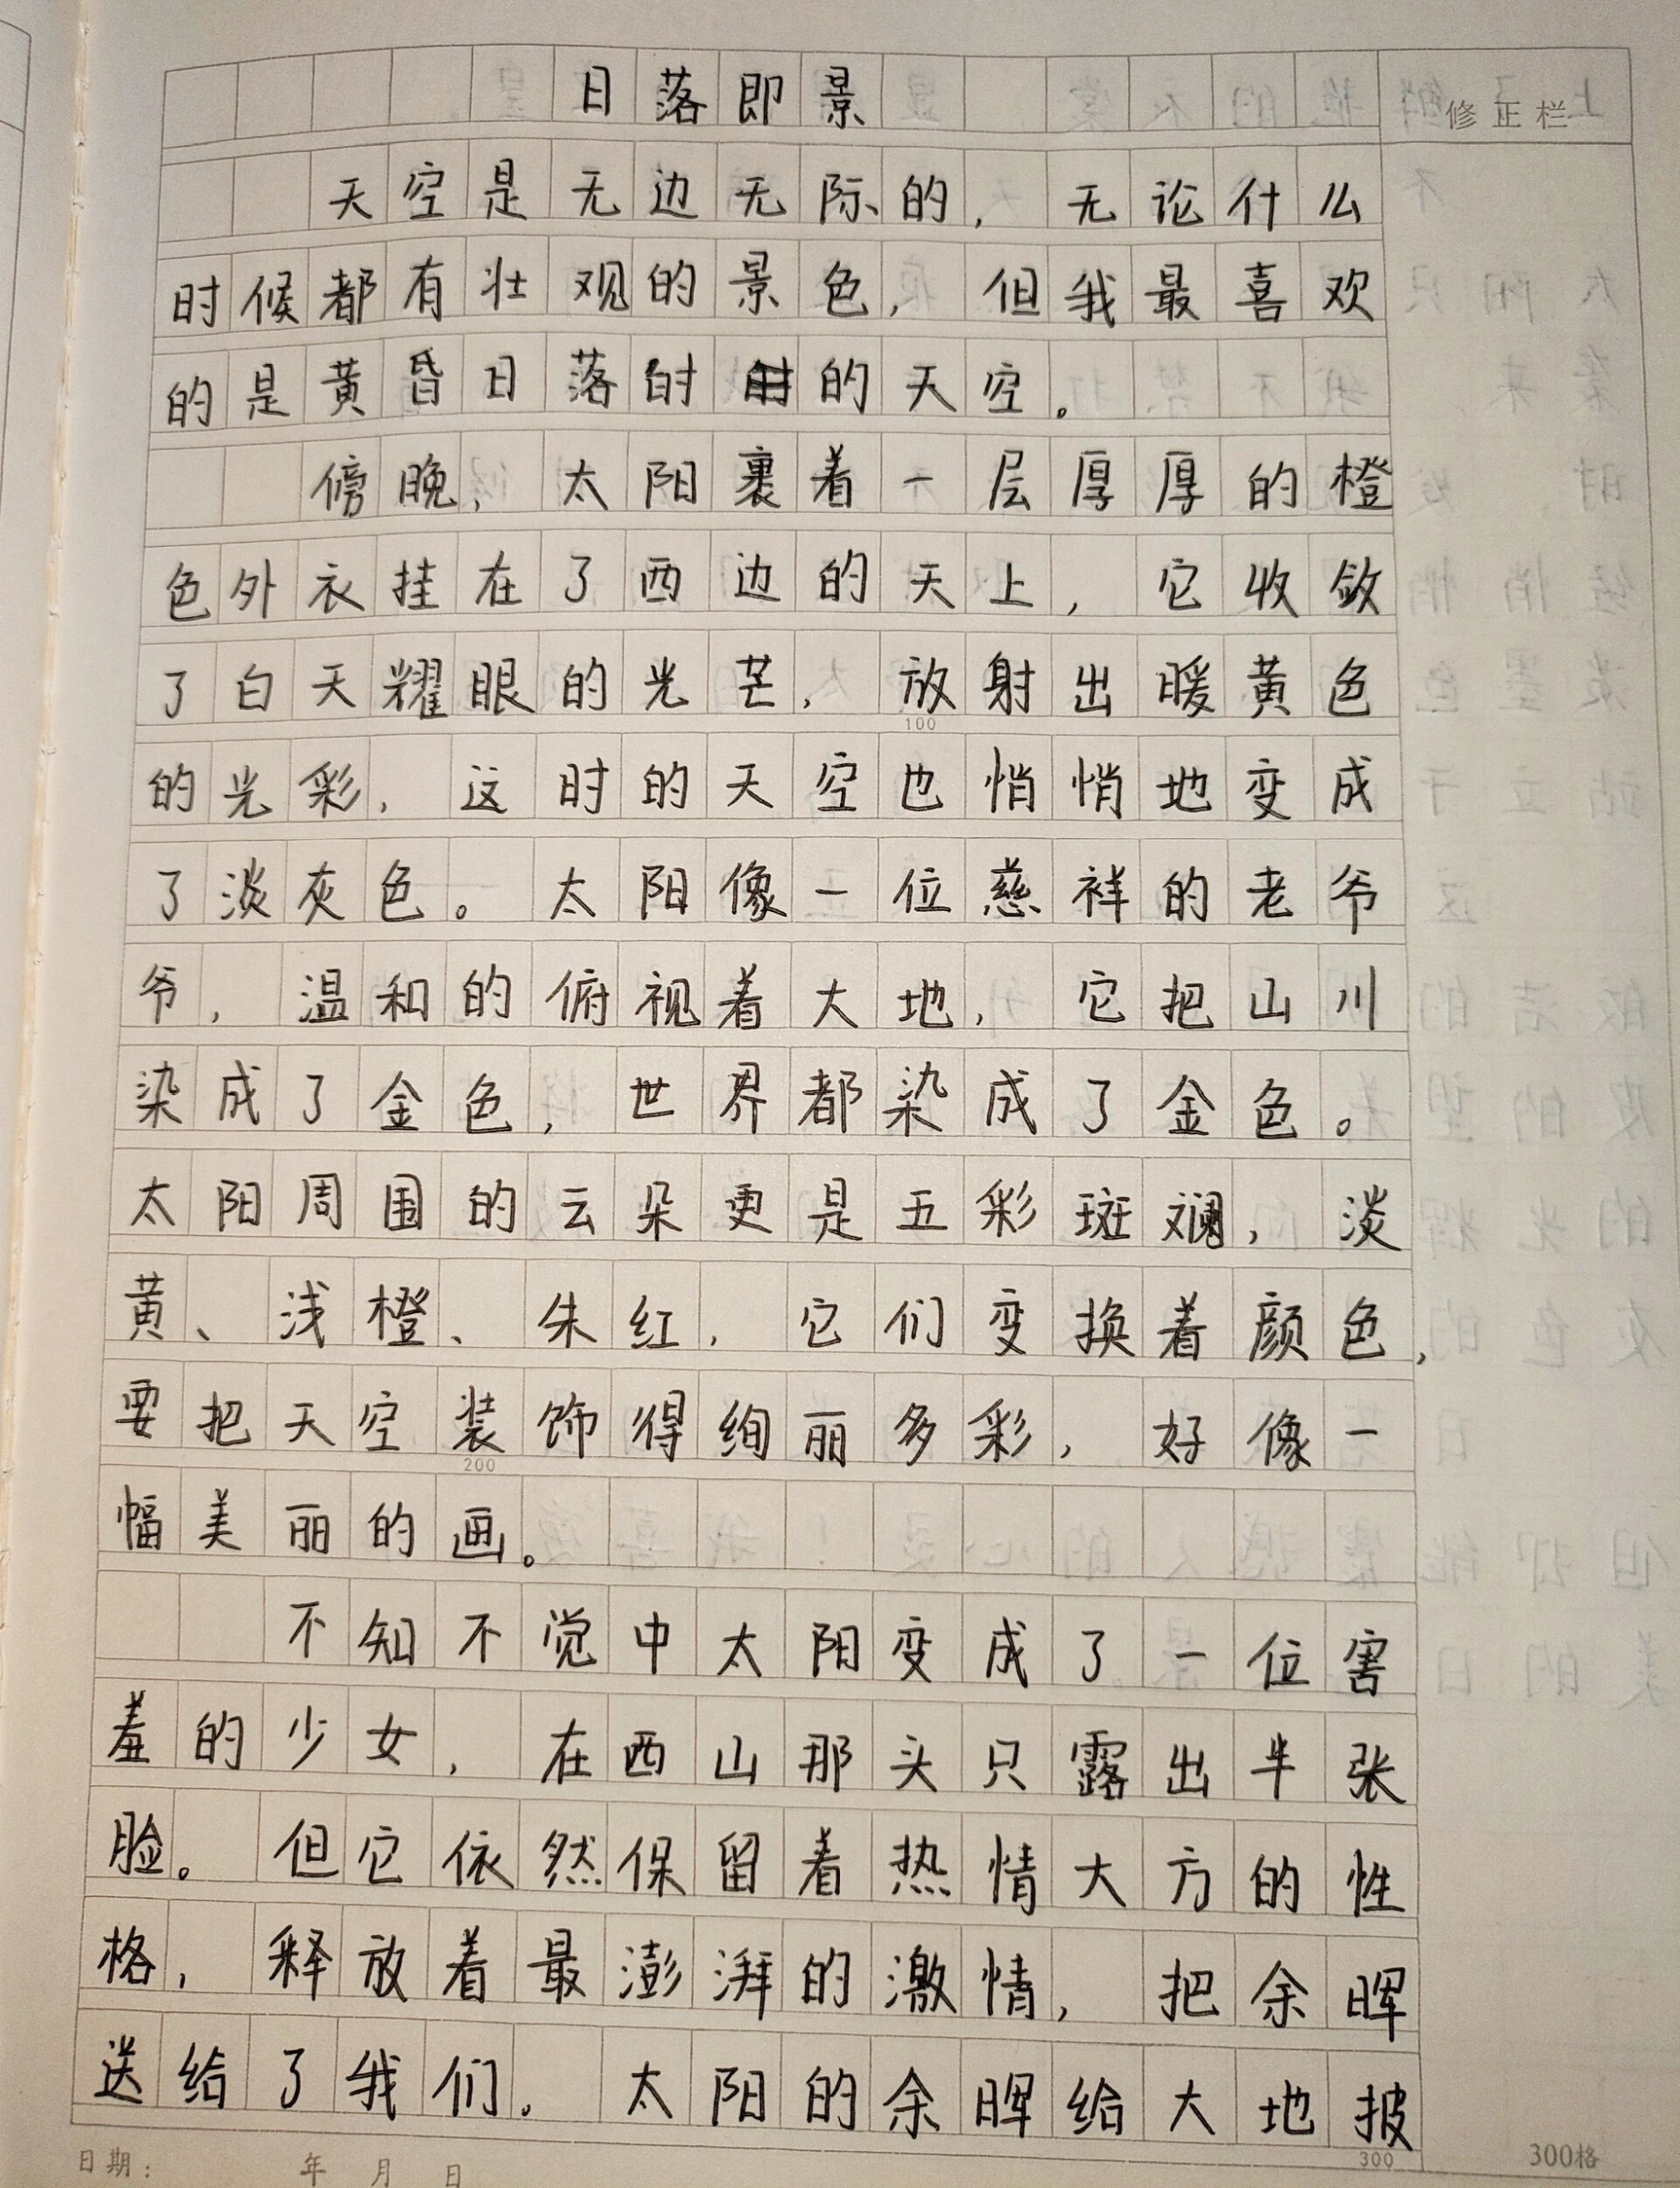 日落即景
修正栏
天空是无边无际的，无论什么
时候都有壮观的景色，但我最喜欢
的是黄昏日落时的天空。
傍晚，太阳裹着一层厚厚的橙
色外衣挂在了西边的天上，它收敛
了白天耀眼的光芒，放射出暖黄色
100
的光彩，这时的天空也悄悄地变成
了淡灰色。太阳像一位慈祥的老爷
爷，温和的俯视着大地，它把山川
染成了金色，世界都染成了金色。
太阳周围的云朵更是五彩斑斓，淡
黄、浅橙、朱红，它们变换着颜色，
要把天空装饰得绚丽多彩，好像一
200
幅美丽的画。
不知不觉中太阳变成了一位害
羞的少女，在西山那头只露出半张
脸。但它依然保留着热情大方的性
格，释放着最澎湃的激情，把余晖
送给了我们。太阳的余晖给大地披
300
日期： 年 月 日
300格